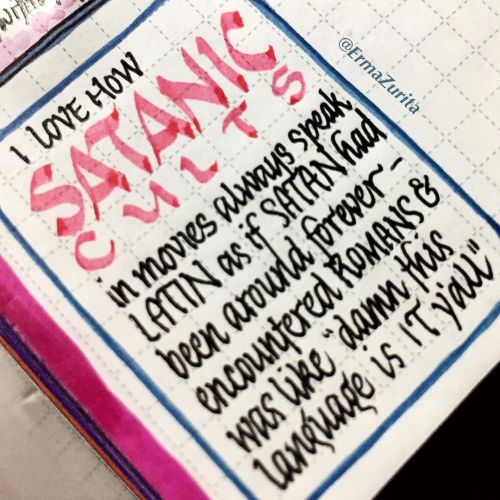 I LOVE HOW
SATANIC
CULTS
in movies always speak
LATIN as if SATAN had
been around forever,
encountered ROMANS &
was like "damn this
language is IT y'all"
@ErmaZurita